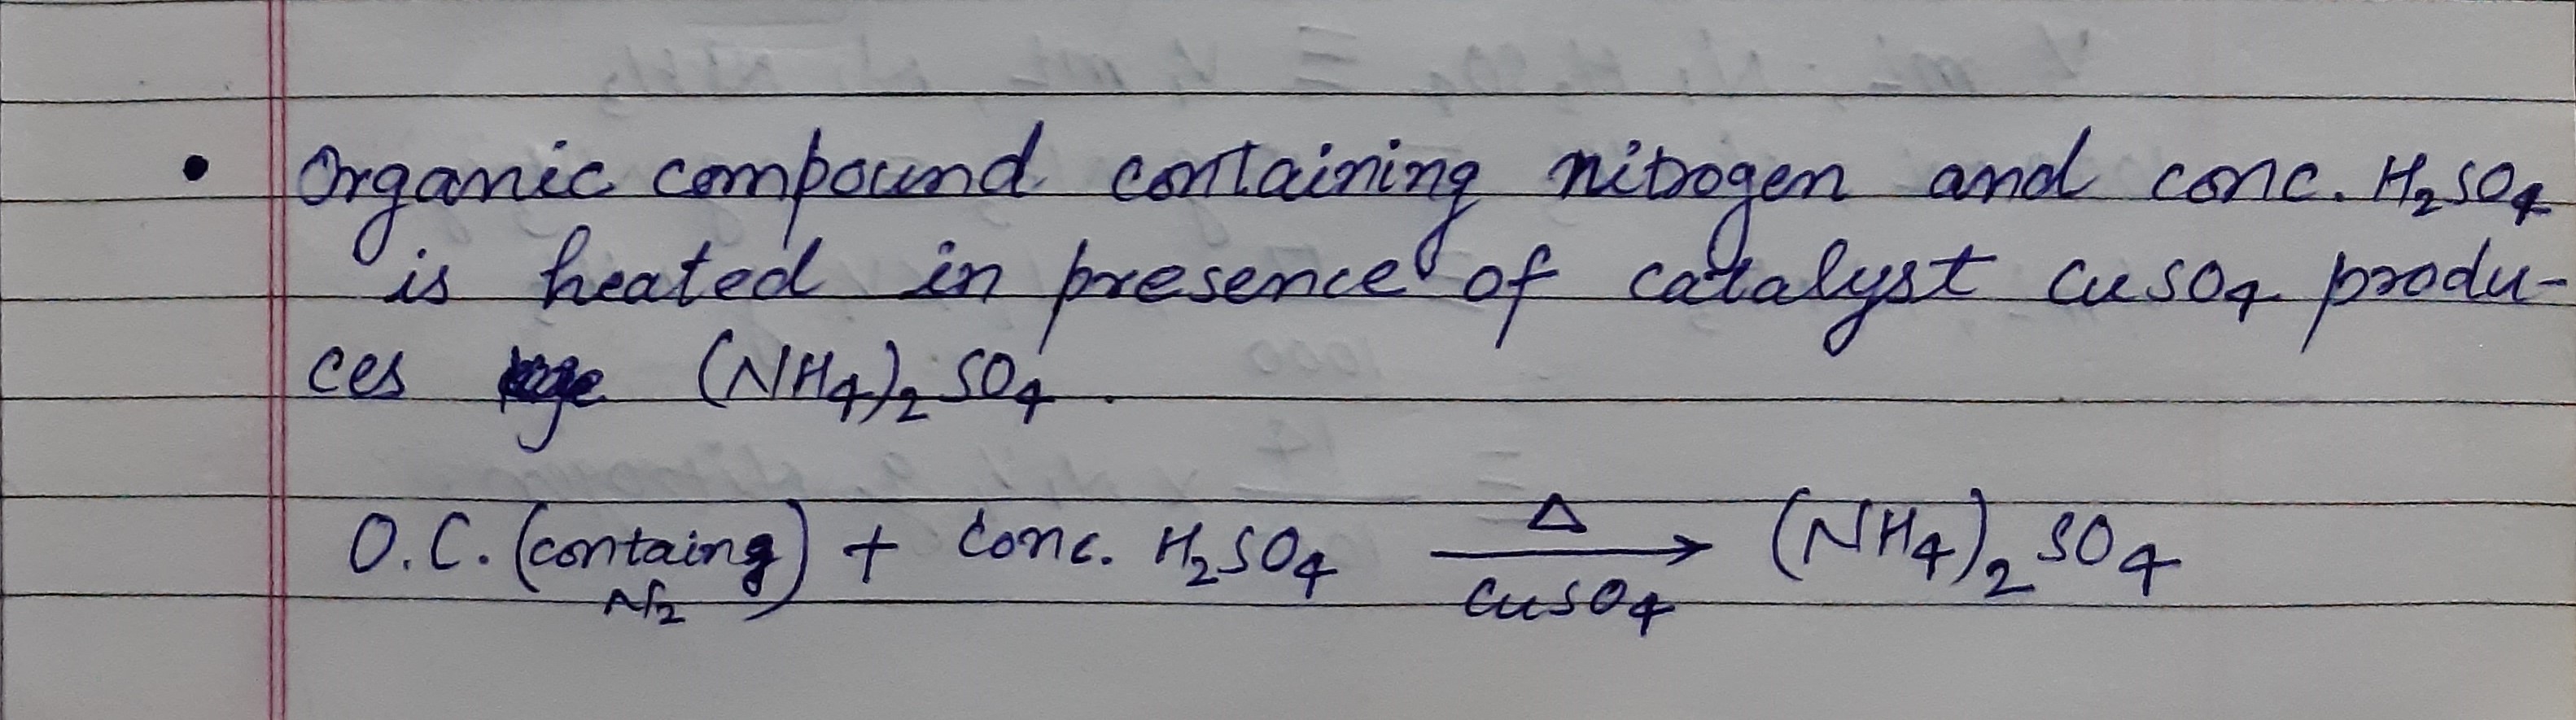 • Organic compound containing nitrogen and conc. H₂SO₄
is heated in presence of catalyst CuSO₄ produ-
ces (NH₄)₂SO₄.
Δ
O.C. (containg) + Conc. H₂SO₄ → (NH₄)₂SO₄
N₂ CuSO₄